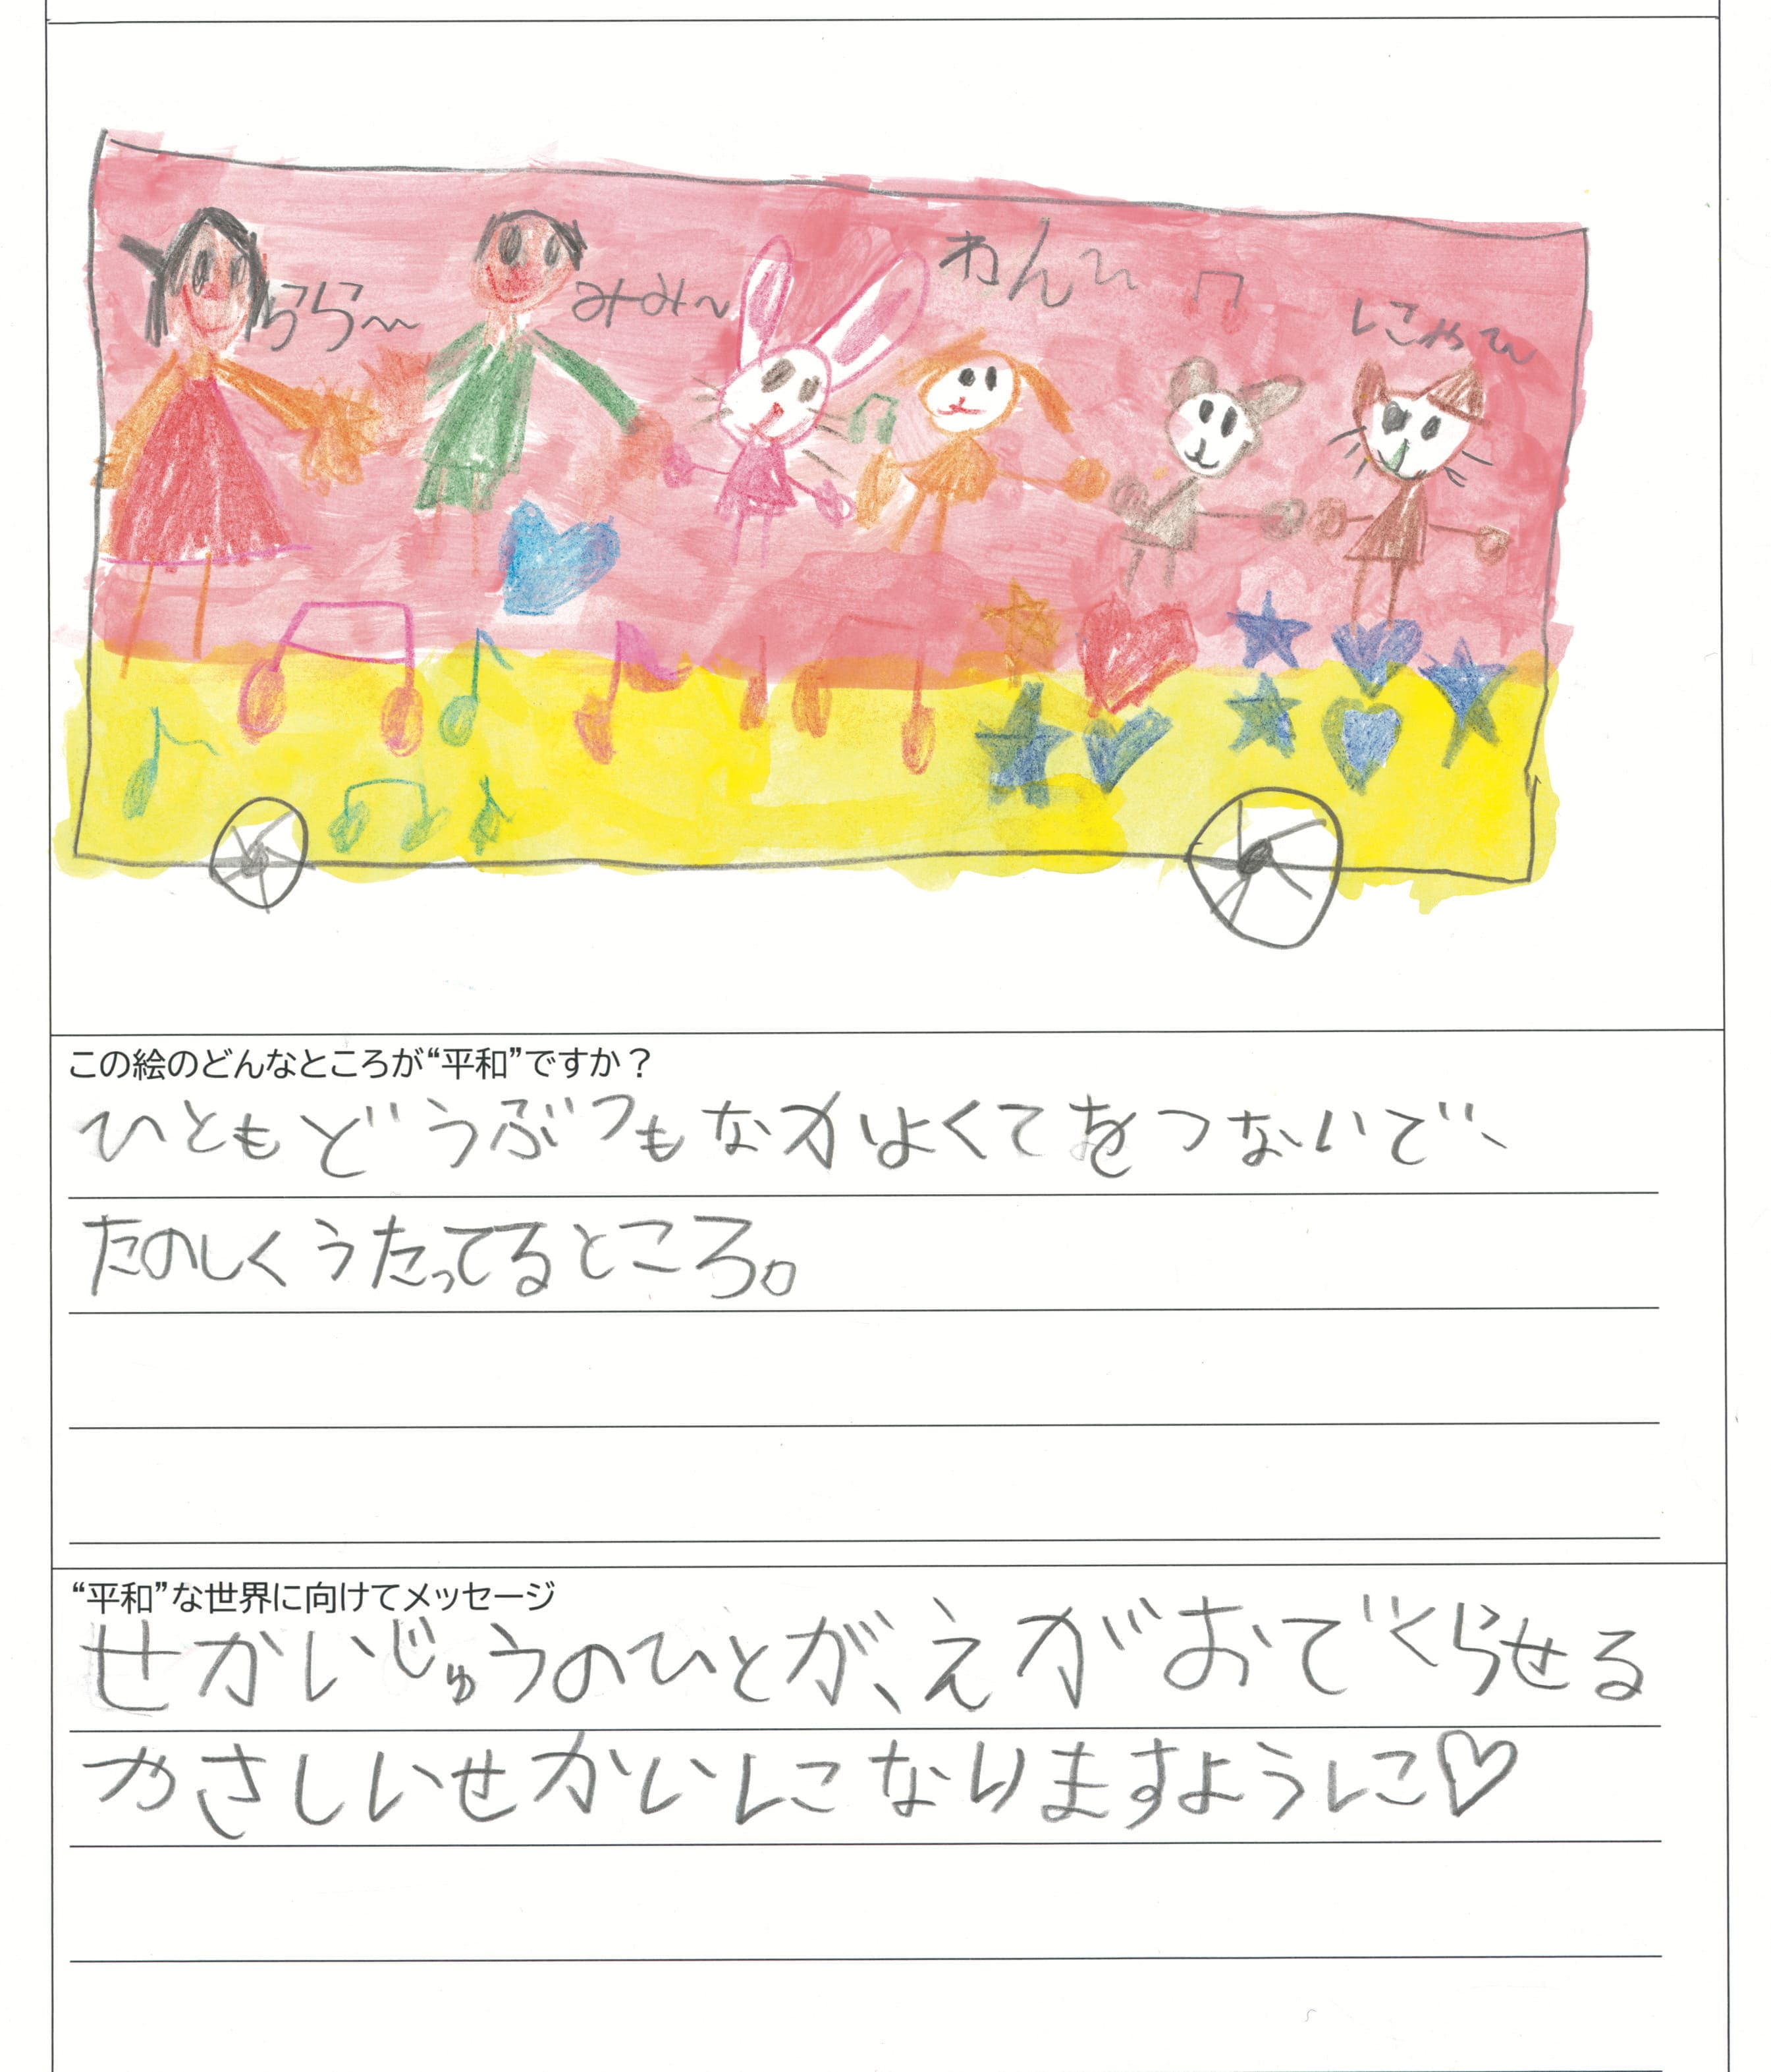 らら～
みみ～
わん～
にゃ～
この絵のどんなところが“平和”ですか？
ひともどうぶつもなかよくてをつないで、
たのしくうたってるところ。
“平和”な世界に向けてメッセージ
せかいじゅうのひとが、えがおでくらせる
やさしいせかいになりますように♡